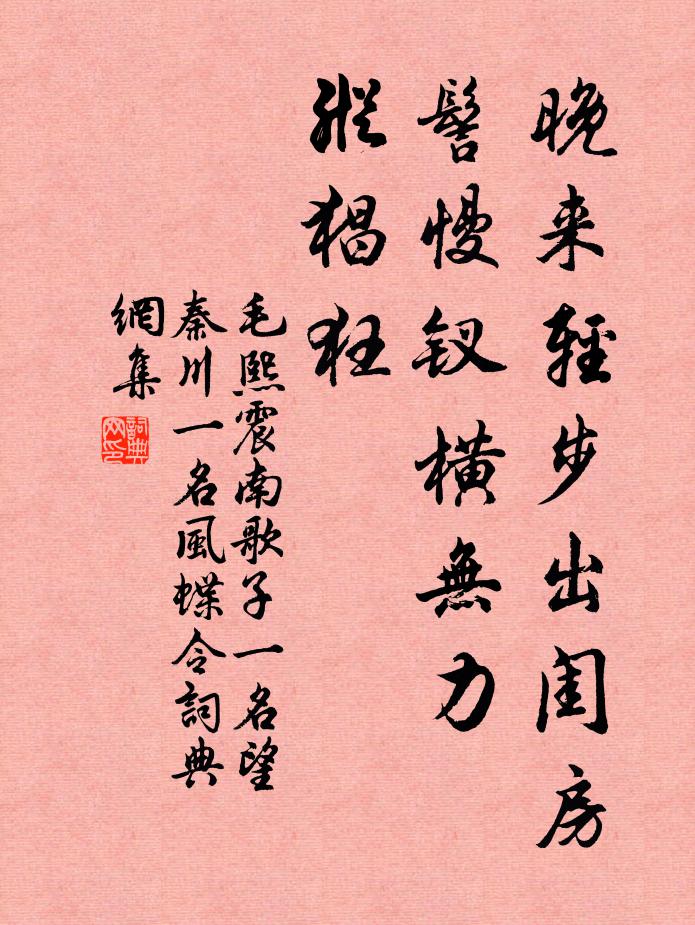 晚来輕步出闺房
髻慢钗橫無力
縱猖狂
毛熙震南歌子一名望
秦川一名風蝶令詞典
網集
詞典
网印